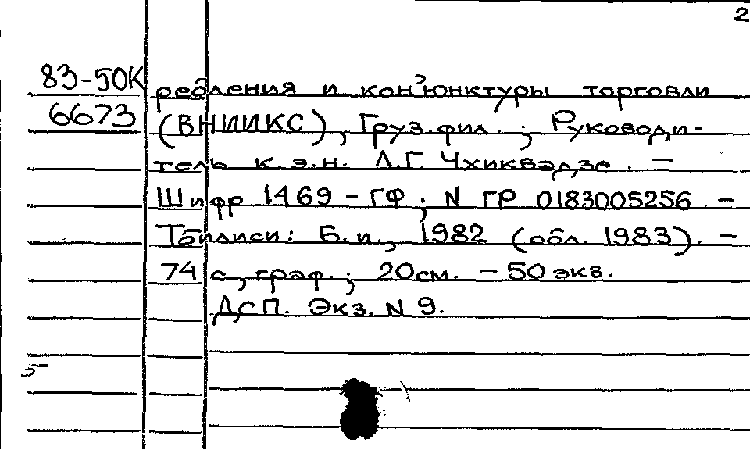 2
83-50К
6673
ребления и кон'юнктуры торговли
(ВНИИКС), Груз.фил. ; Руководи-
тель к.э.н. Л.Г. Чхиквадзе. –
Шифр 1469 – ГФ ; N ГР 0183005256 –
Тбилиси: Б.и., 1982 (обл. 1983). –
74 с., граф. ; 20см. – 50 экв.
ДСП. Экз. N 9.
5